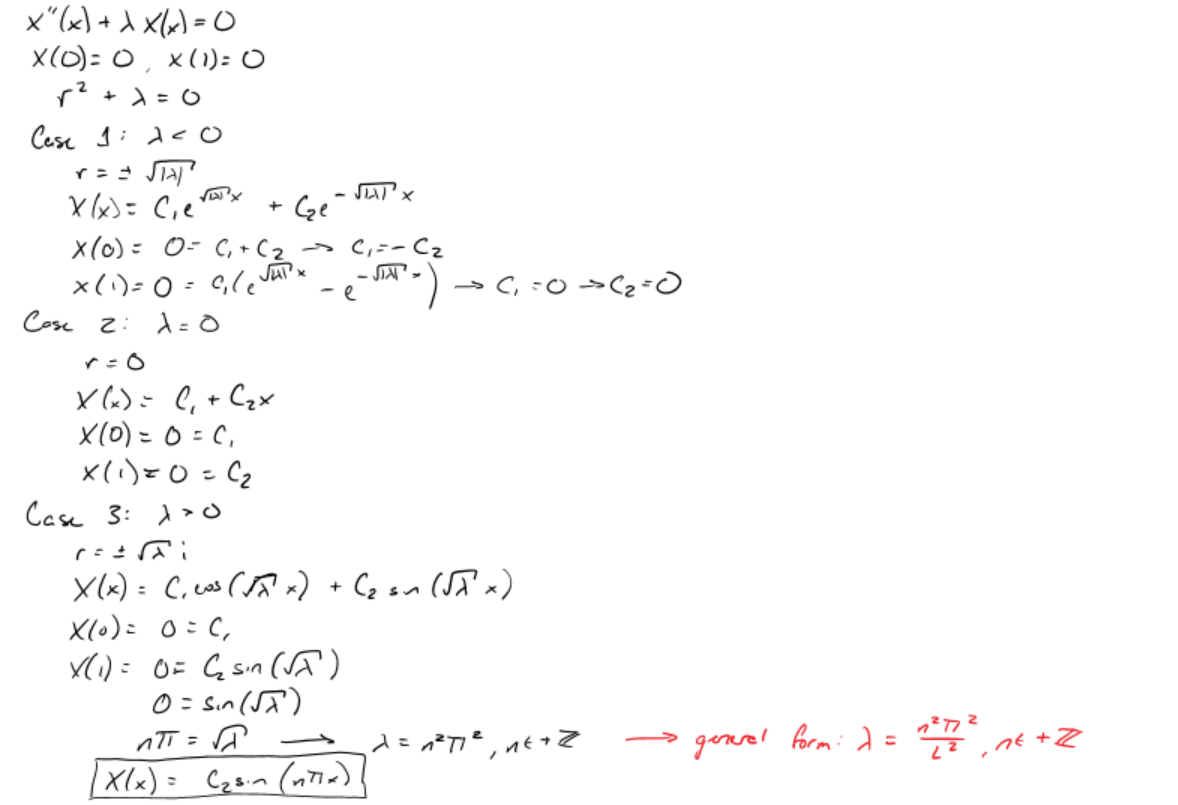 X''(x) + λ X(x) = 0
X(0) = 0 , X(1) = 0
r² + λ = 0
Case 1: λ < 0
r = ± √|λ|
X(x) = C₁e^(√|λ| x) + C₂e^(-√|λ| x)
X(0) = 0 = C₁ + C₂ → C₁ = -C₂
X(1) = 0 = C₁(e^(√|λ| x) - e^(-√|λ| x)) → C₁ = 0 → C₂ = 0
Case 2: λ = 0
r = 0
X(x) = C₁ + C₂x
X(0) = 0 = C₁
X(1) = 0 = C₂
Case 3: λ > 0
r = ± √λ i
X(x) = C₁ cos(√λ x) + C₂ sin(√λ x)
X(0) = 0 = C₁
X(1) = 0 = C₂ sin(√λ)
0 = sin(√λ)
nπ = √λ → λ = n²π², n ∈ + ℤ → general form: λ = n²π²/L², n ∈ + ℤ
X(x) = C₂ sin(nπx)